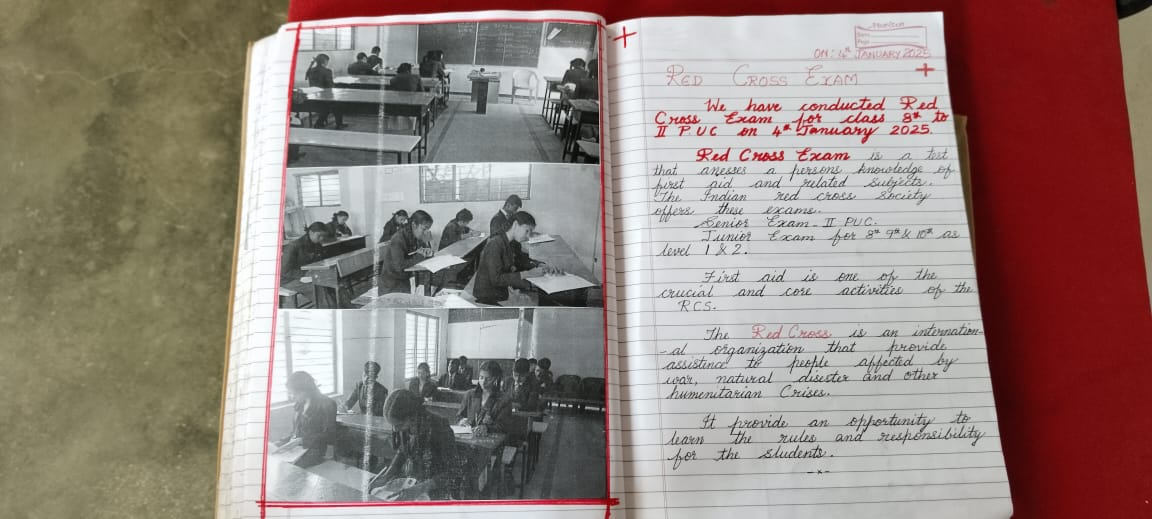 ON: 4th JANUARY 2025
RED CROSS EXAM
We have conducted Red
Cross Exam for class 8th to
II PUC on 4th January 2025.
Red Cross Exam is a test
that assesses a persons knowledge of
first aid and related subjects.
The Indian red cross society
offers these exams.
Senior Exam - II PUC.
Junior Exam for 8th 9th & 10th as
level 1 & 2.
First aid is one of the
crucial and core activities of the
RCS.
The Red Cross is an internation-
-al organization that provide
assistence to people affected by
war, natural disester and other
humenitarian Crises.
It provide an opportunity to
learn the rules and responsibility
for the students.
-x-